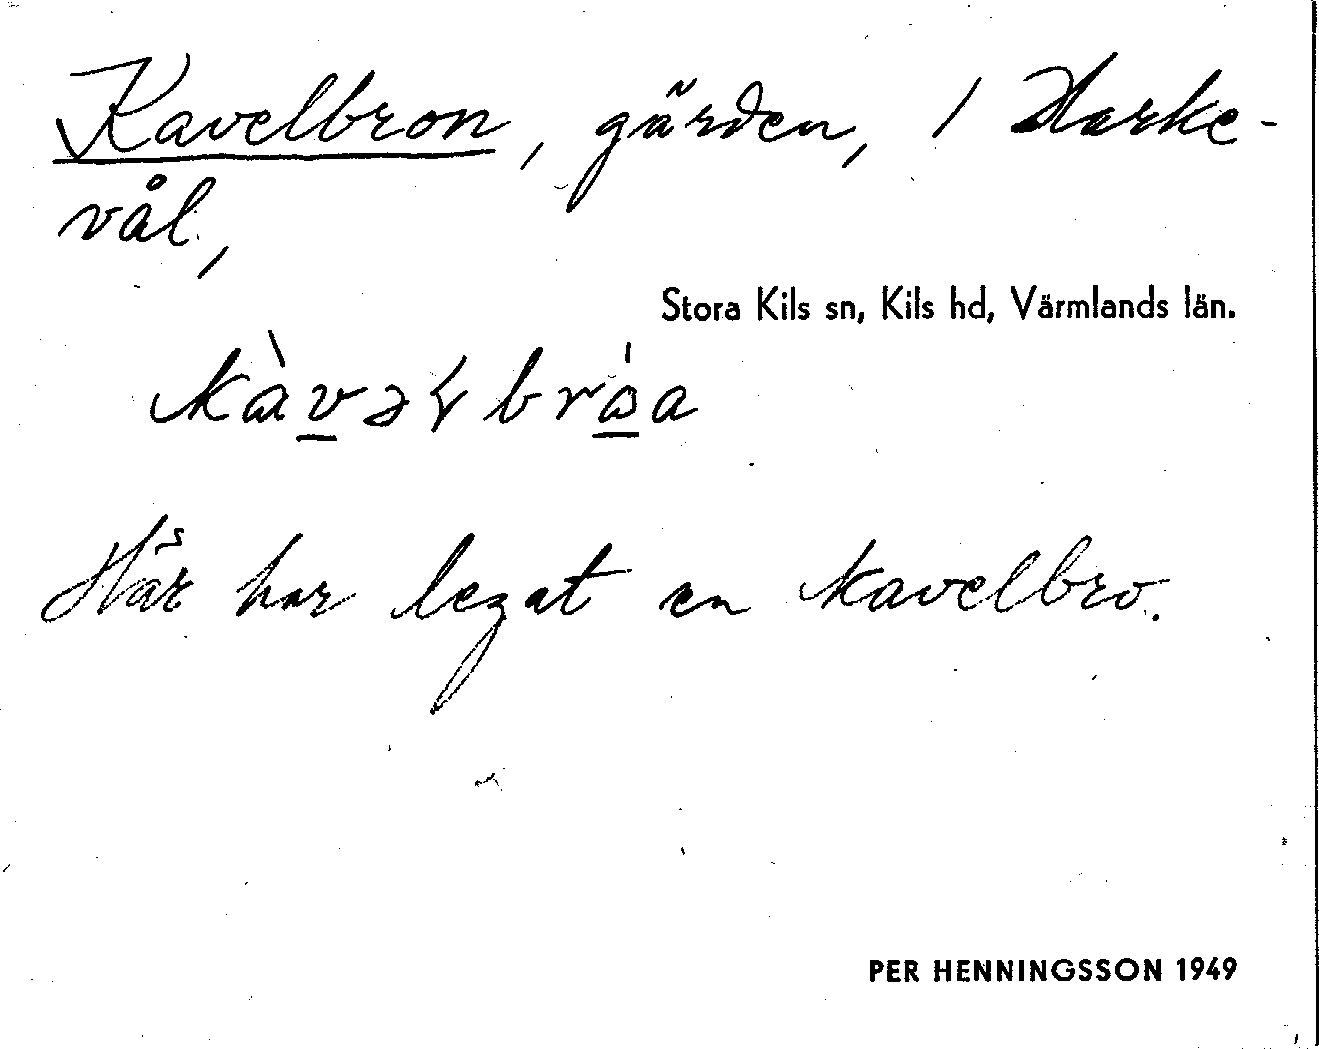 Kavelbron, gärden, 1 Harke-
vål,
Stora Kils sn, Kils hd, Värmlands län.
Här har legat en kavelbro.
PER HENNINGSSON 1949